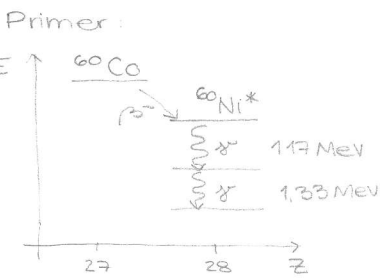 Primer:
E
⁶⁰Co
⁶⁰Ni*
β⁻
γ 1.17 MeV
γ 1.33 MeV
27 28 Z